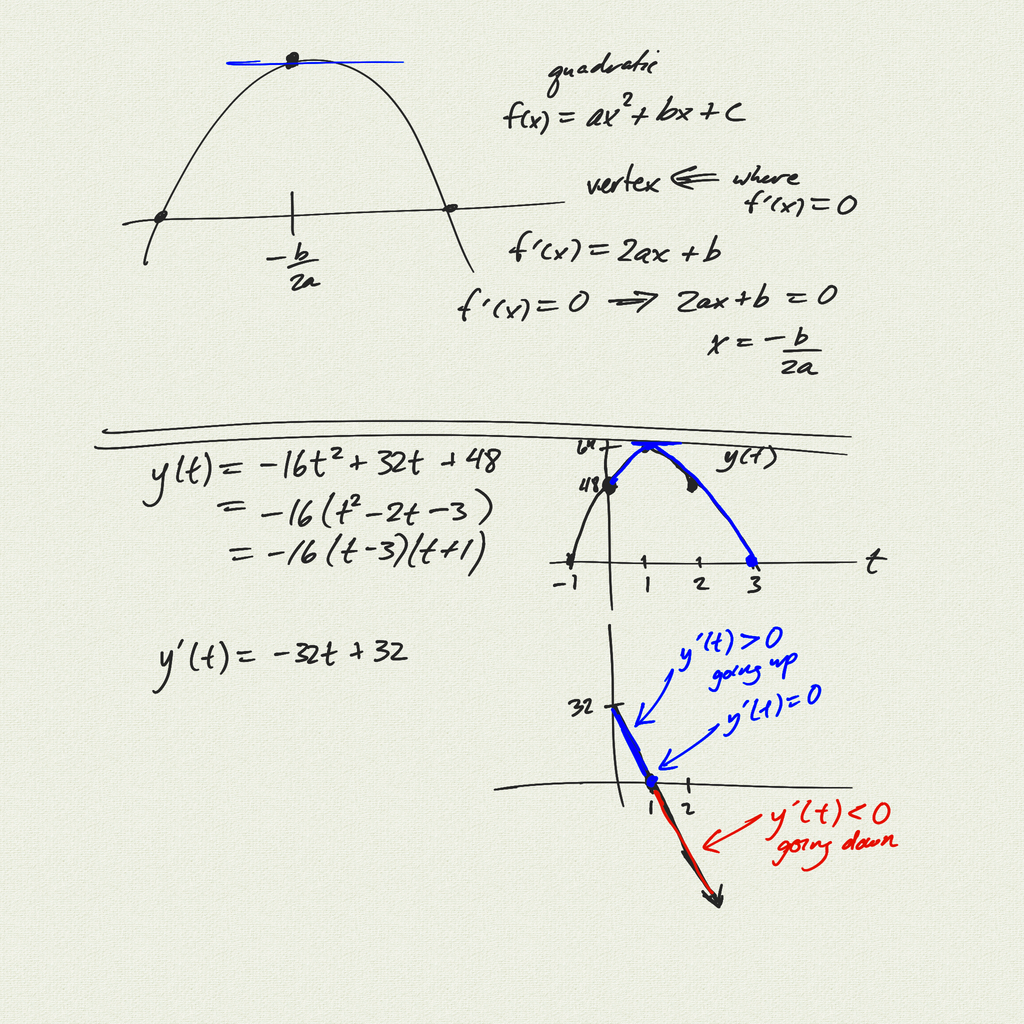 quadratic
f(x) = ax² + bx + c
vertex ⇐ where
f'(x) = 0
-b/2a
f'(x) = 2ax + b
f'(x) = 0 ⇒ 2ax + b = 0
x = -b/2a
y(t) = -16t² + 32t + 48
= -16(t² - 2t - 3)
= -16(t-3)(t+1)
64
y(t)
48
-1 1 2 3 t
y'(t) = -32t + 32
y'(t) > 0
going up
32
y'(t) = 0
1 2
y'(t) < 0
going down